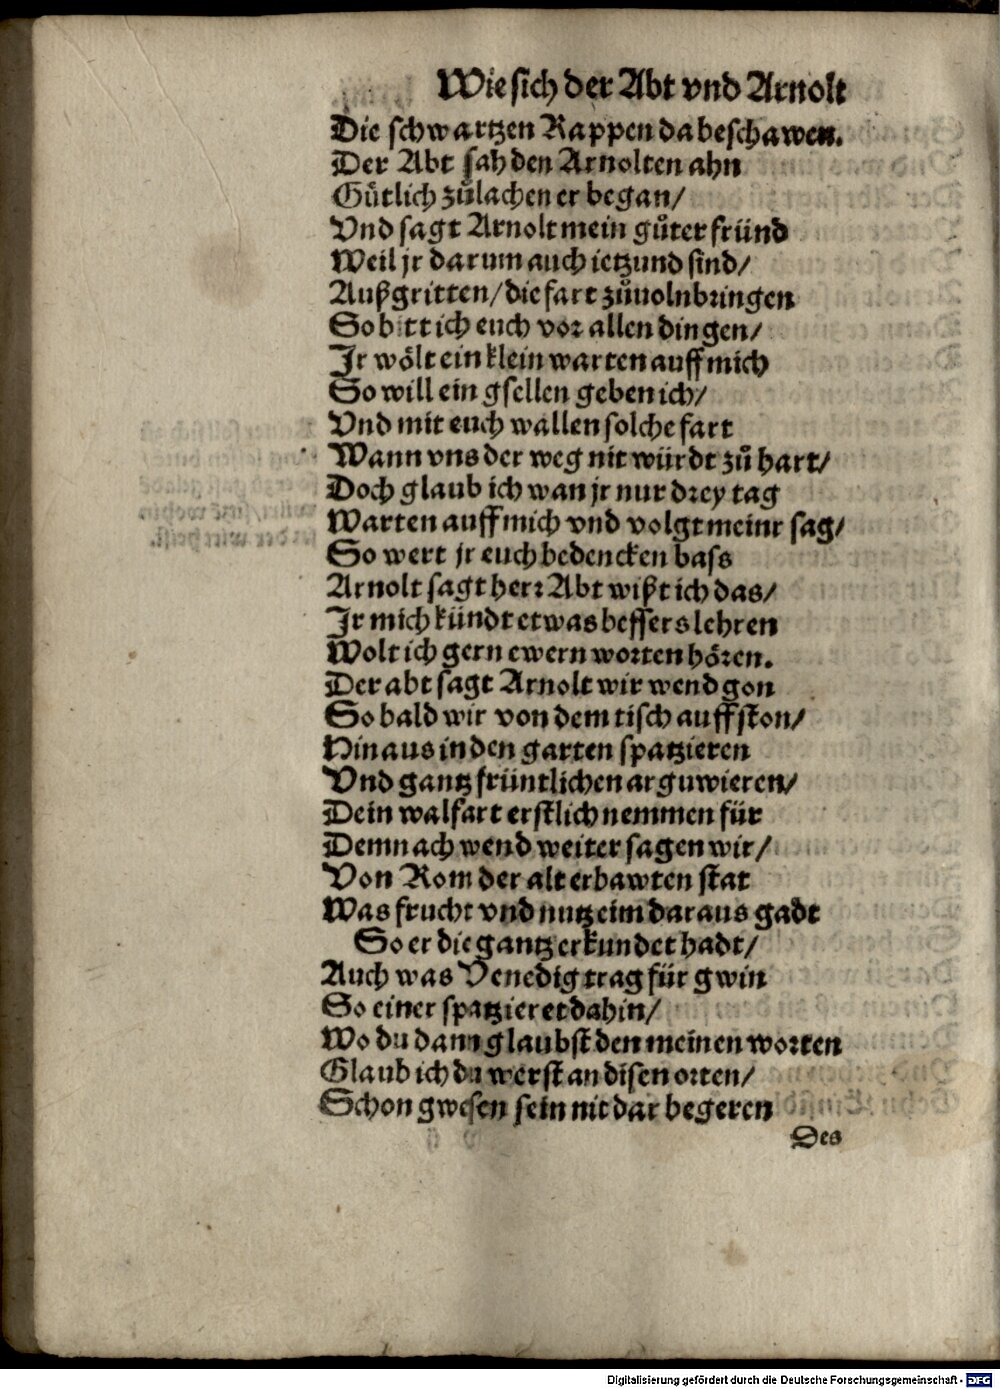 Wie sich der Abt vnd Arnolt
Die schwartzen Rappen da beschawen.
Der Abt sah den Arnolten ahn
Guͤtlich zuͦlachen er began/
Vnd sagt Arnolt mein guͦter fründ
Weil jr darum auch ietzund sind/
Außgritten/ die fart zuͦuolnbringen
So bitt ich euch vor allen dingen/
Jr woͤlt ein klein warten auff mich
So will ein gsellen geben ich/
Vnd mit euch wallen solche fart
Wann vns der weg nit würdt zuͦ hart/
Doch glaub ich wan jr nur drey tag
Warten auff mich vnd volgt meinr sag/
So wert jr euch bedencken bass
Arnolt sagt herr Abt wißt ich das/
Jr mich kündt etwas bessers lehren
Wolt ich gern ewern worten hoͤren.
Der abt sagt Arnolt wir wend gon
So bald wir von dem tisch auff ston/
Hinaus in den garten spatzieren
Vnd gantz früntlichen arguwieren/
Dein walfart erstlich nemmen für
Demnach wend weiter sagen wir/
Von Rom der alt erbawten stat
Was frucht vnd nutz eim daraus gadt
So er die gantz erkundet hadt/
Auch was Venedig trag für gwin
So einer spatzieret dahin/
Wo du dann glaubst den meinen worten
Glaub ich du werst an disen orten/
Schon gwesen sein nit dar begeren
Des
Digitalisierung gefördert durch die Deutsche Forschungsgemeinschaft - DFG